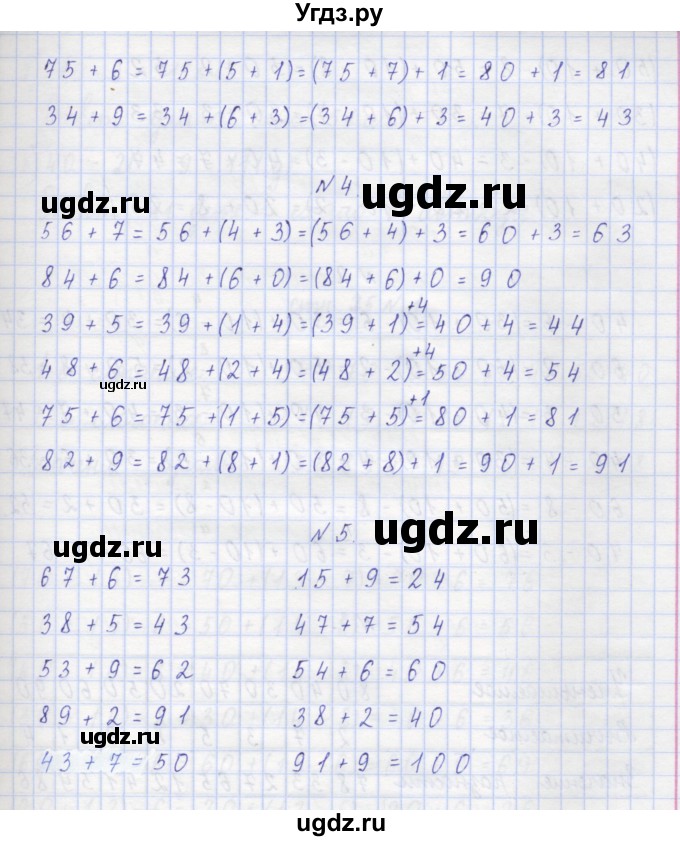 Угдз.ру
75 + 6 = 75 + (5 + 1) = (75 + 7) + 1 = 80 + 1 = 81
34 + 9 = 34 + (6 + 3) = (34 + 6) + 3 = 40 + 3 = 43
N 4
ugdz.ru
ugdz.ru
56 + 7 = 56 + (4 + 3) = (56 + 4) + 3 = 60 + 3 = 63
84 + 6 = 84 + (6 + 0) = (84 + 6) + 0 = 90
39 + 5 = 39 + (1 + 4) = (39 + 1) +4 = 40 + 4 = 44
48 + 6 = 48 + (2 + 4) = (48 + 2) +4 = 50 + 4 = 54
ugdz.ru
75 + 6 = 75 + (1 + 5) = (75 + 5) +1 = 80 + 1 = 81
82 + 9 = 82 + (8 + 1) = (82 + 8) + 1 = 90 + 1 = 91
N 5.
ugdz.ru
ugdz.ru
67 + 6 = 73 15 + 9 = 24
38 + 5 = 43 47 + 7 = 54
53 + 9 = 62 54 + 6 = 60
89 + 2 = 91 38 + 2 = 40
ugdz.ru
43 + 7 = 50 91 + 9 = 100
ugdz.ru